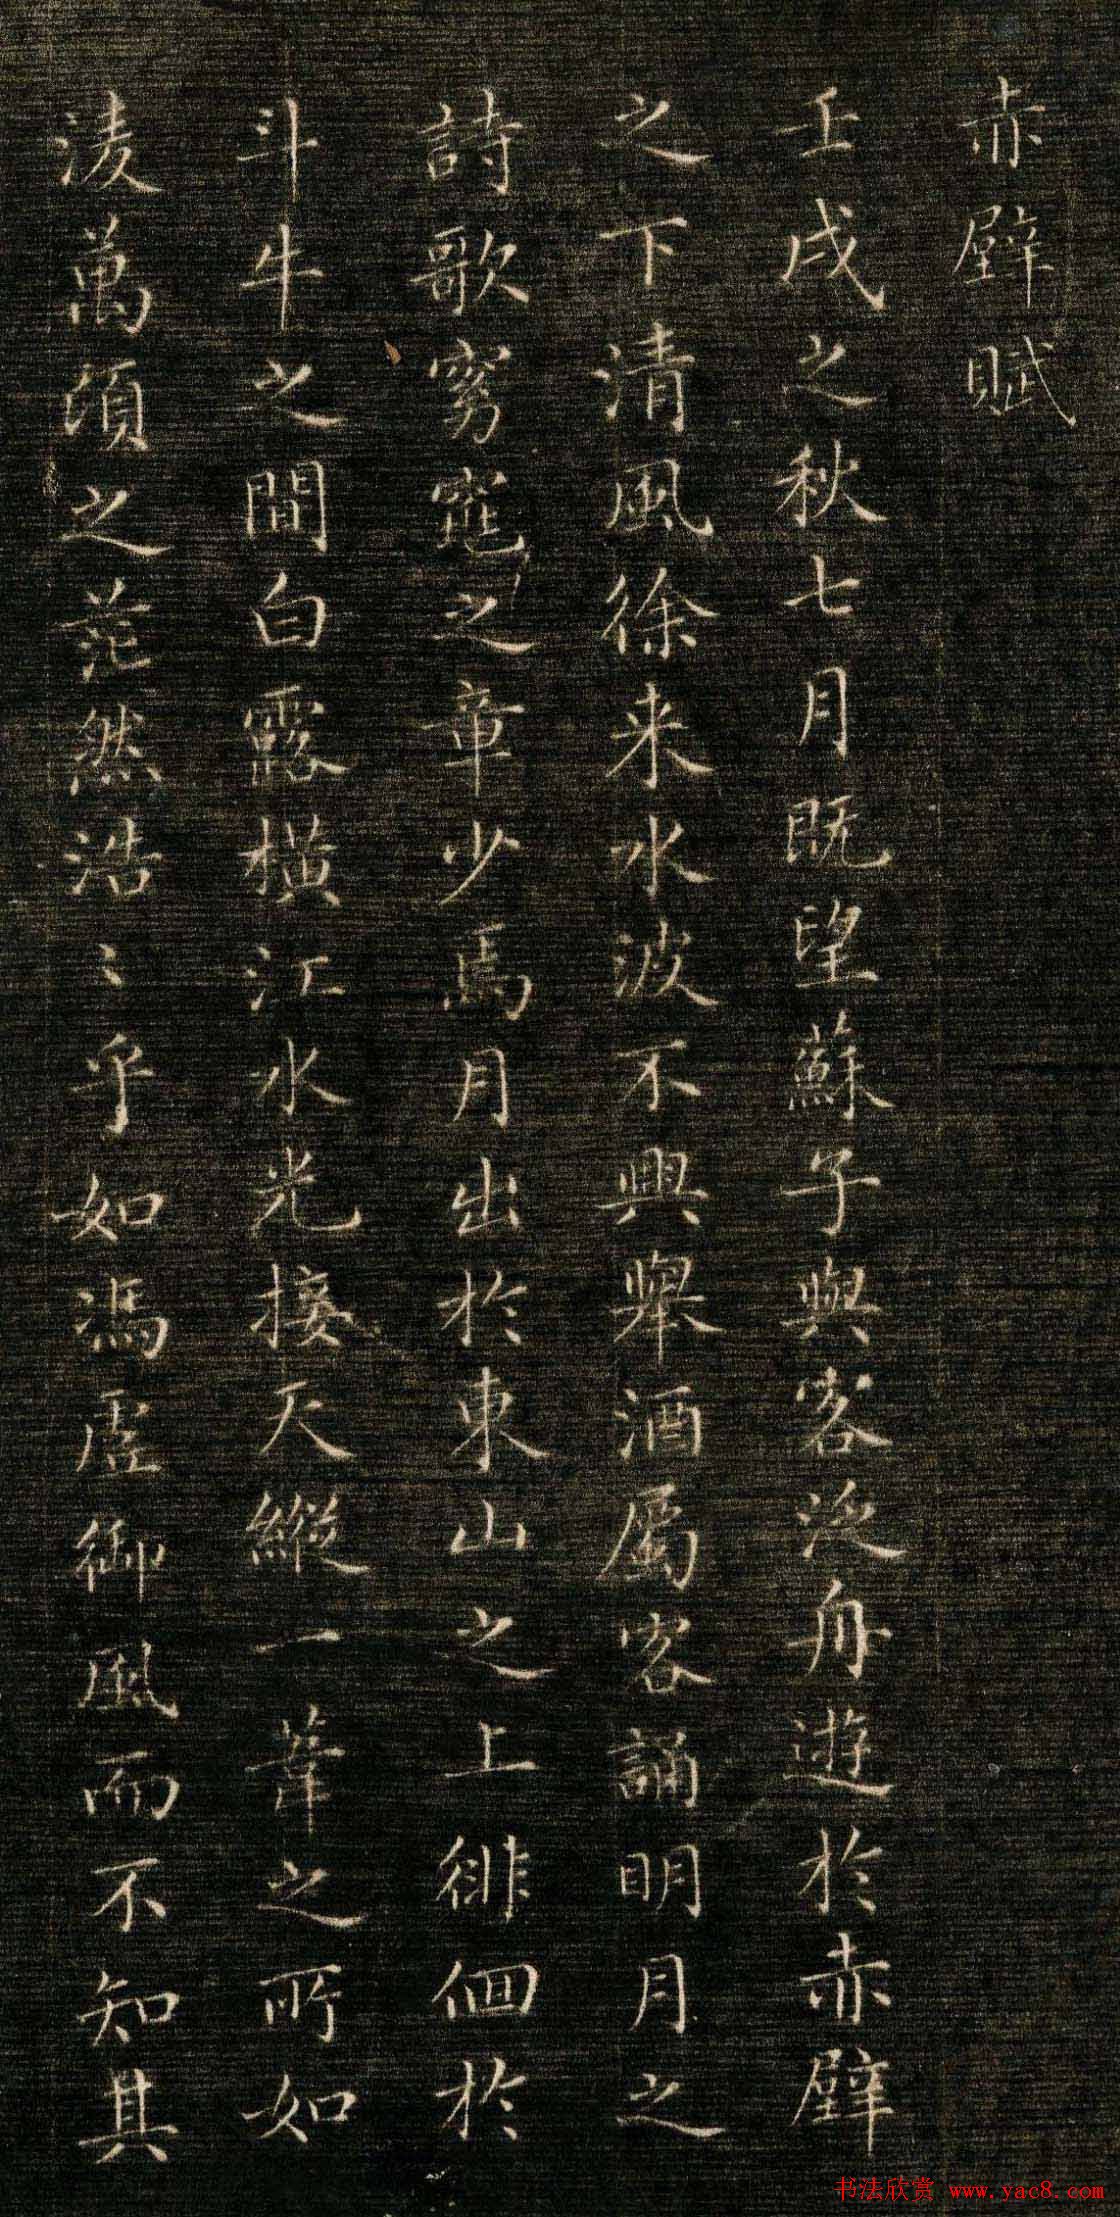 赤壁賦
壬戌之秋七月既望蘇子與客泛舟遊於赤壁
之下清風徐来水波不興舉酒屬客誦明月之
詩歌窈窕之章少焉月出於東山之上徘徊於
斗牛之間白露横江水光接天縱一葦之所如
凌萬頃之茫然浩〻乎如馮虛御風而不知其
书法欣赏 www.yac8.com